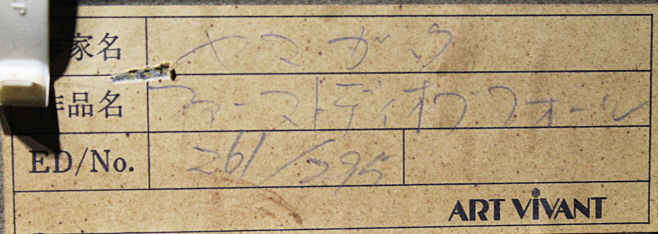 家名 ヤマガタ
作品名 ファーストディオブフォール
ED/No. 261/295
ART ViVANT